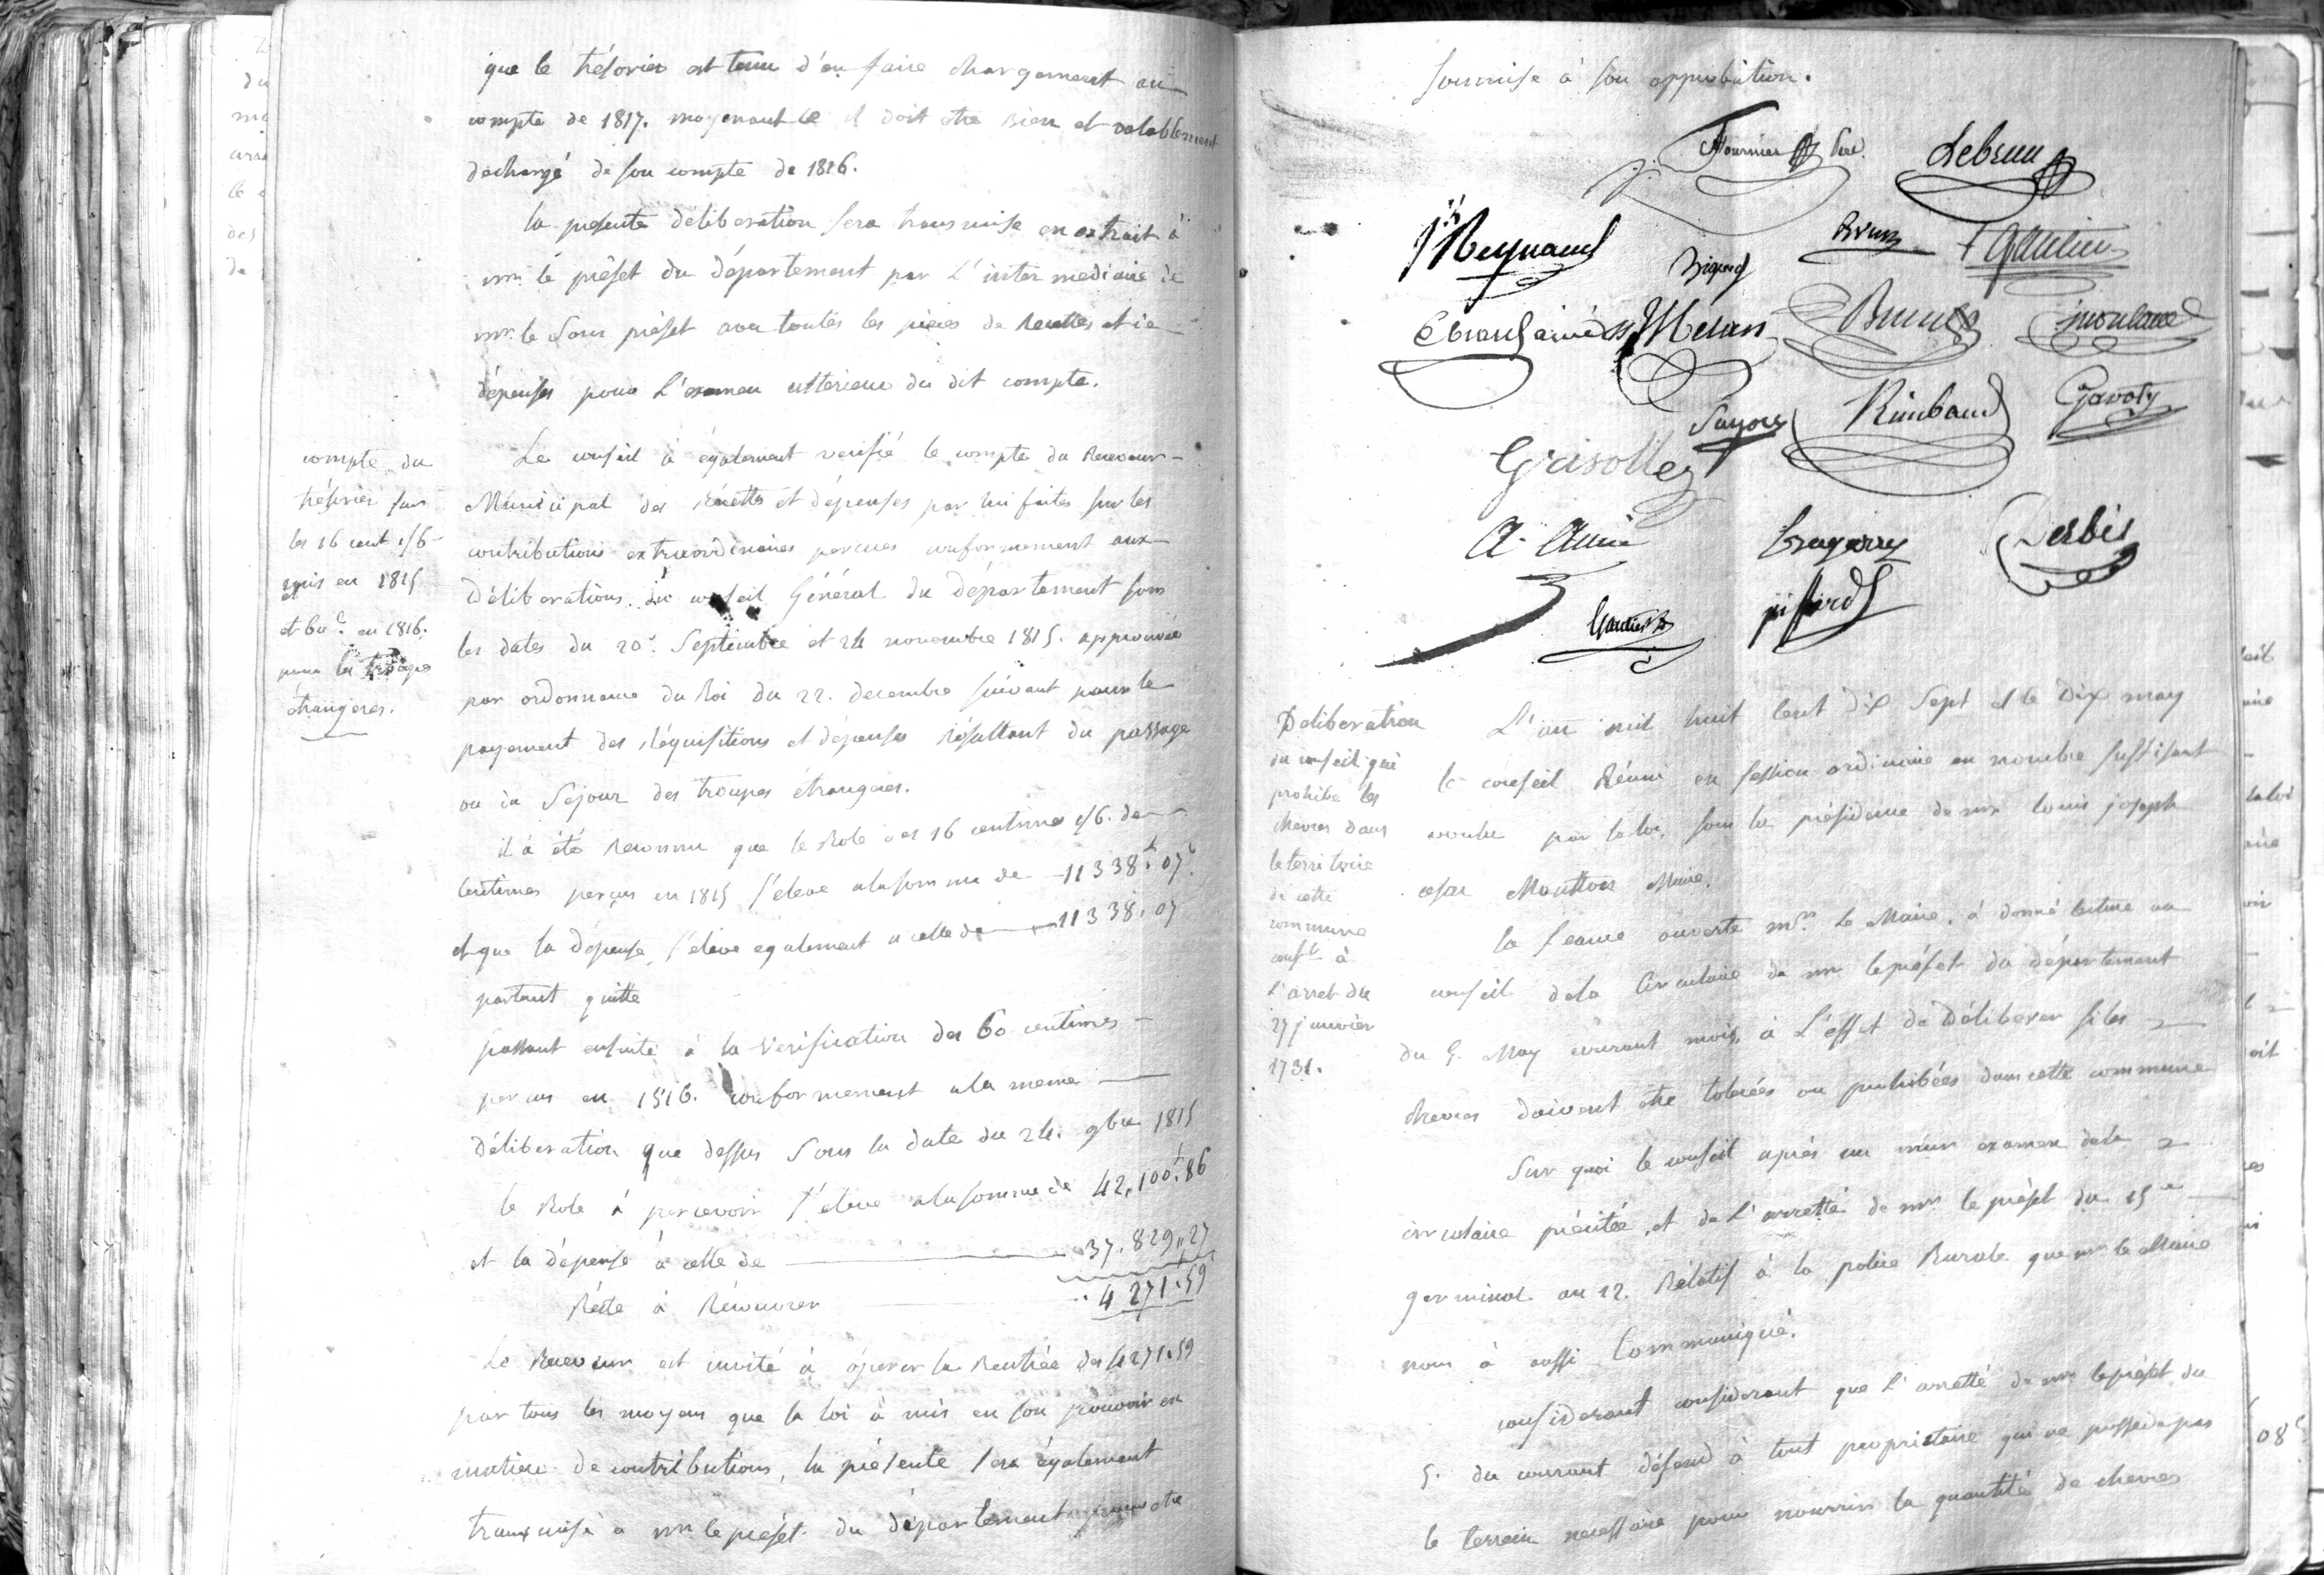 que le trésorier est tenu d'en faire chargement au
compte de 1817. moyenant ce il doit etre bien et valablement
déchargé de son compte de 1816.
la presente déliberation sera transmise en extrait à
mr. le préfet du département par l'intermediaire de
mr. le Sous préfet avec toutes les pieces de Recettes et de
dépenses pour l'examen ulterieur du dit compte.
compte du
trésorier sur
les 16 cent 1/6
mis en 1815
et
et 60 c. en 1816.
pour les troupes
étrangeres.
Le conseil à également verifié le compte du Receveur
Municipal des recettes et dépenses par lui faites sur les
contributions extraordinaires percues conformement aux
Déliberations du conseil Général du Département sous
les dates du 20 Septembre et 24 novembre 1815. approuvée
par ordonnance du Roi du 22. decembre suivant pour le
payement des Réquisitions et dépenses Résultant du passage
ou du Séjour des troupes étrangeres.
il à été Reconnu que le Role des 16 centimes 1/6. de
Centimes perçus en 1815 s'éleve a la somme de 11338f.07c
et que la dépense s'éleve egalement a celle de 11338.07
partant quitte
passant ensuite à la Verification des 60 centimes
percus en 1816. conformement a la meme
Déliberation que dessus Sous la date du 24. 9bre 1815
le Role à percevoir s'éleve a la somme de 42,100f.86
et la dépense à celle de 37.829,,27
Reste à Récouvrer 4271.59
Le Receveur est invité à óperer la Rentrée des 4271.59
par tous les moyens que la loi à mis en son pouvoir en
matiere de contributions, la présente sera également
transmise a mr. le préfet du département pour etre
Soumise à son approbation.
Fournier Pere Lebrun
Jh Reynaud Brun
Meran Brun
Rimbaud Gavoty
Grisolle
A. Amic
Gautier
Deliberation
du conseil qui
prohibe les
chevres dans
le territoire
de cette
commune
conft. à
l'arret du
27 janvier
1731.
L'an mil huit Cent Dix Sept et le Dix may
le conseil Réuni en session ordinaire en nombre suffisant
voulu par la loi, sous la présidence de mr. louis joseph
cesar Moutton Maire.
la seance ouverte mr. le Maire à donné lecture au
conseil de la Circulaire de mr. le préfet du département
du 5. May courant mois, à l'effet de Déliberer si les
chevres doivent etre tolerées ou prohibées dans cette commune
Sur quoi le conseil aprés un mur examen de la
circulaire précitée, et de l'arretté de mr. le préfet du 15
germinal an 12. Rélatif à la police Rurale que mr. le Maire
nous à aussi Communiqué.
considerant considerant que l'arretté de mr. le préfet du
5. du courant défend à tout proprietaire qui ne possede pas
le terrein necessaire pour nourrir la quantité de chevres